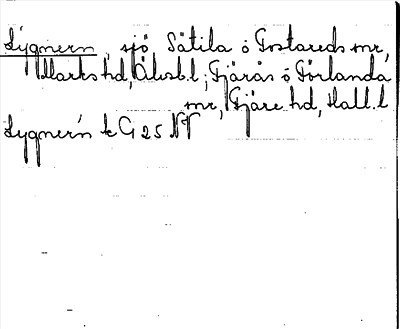 Lygnern, sjö, Sätila o Fostareds snr,
Marks hd, Älvsb. l; Fjärås o Förlanda
snr, Fjäre hd, Hall. l
Lygnern k G 25 NV